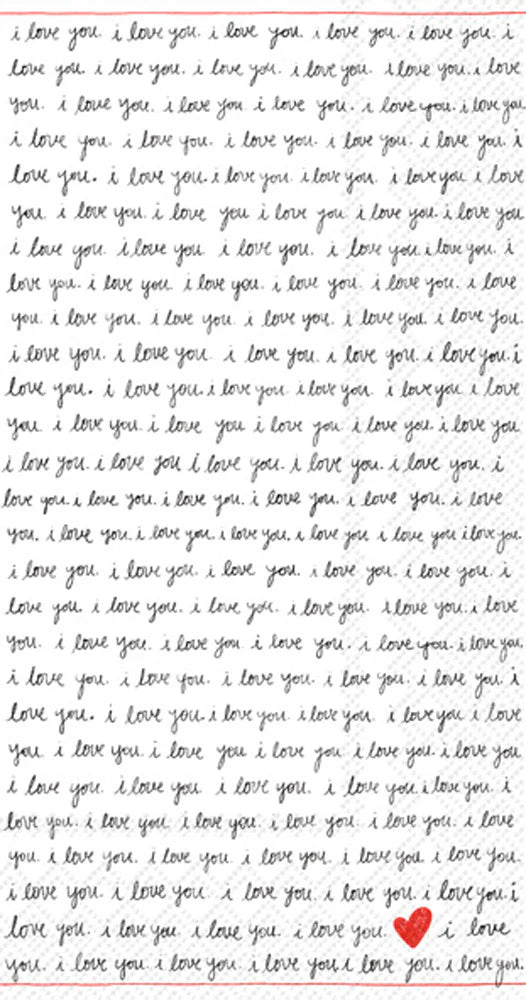 i love you. i love you. i love you. i love you. i love you. i
love you. i love you. i love you. i love you. i love you. i love
you. i love you. i love you i love you. i love you. i love you
i love you. i love you. i love you. i love you. i love you. i
love you. i love you. i love you. i love you. i love you i love
you. i love you. i love you i love you. i love you. i love you
i love you. i love you i love you. i love you. i love you. i
love you. i love you. i love you. i love you. i love you. i love
you. i love you. i love you. i love you. i love you. i love you.
i love you. i love you. i love you. i love you. i love you. i
love you. i love you. i love you. i love you. i love you i love
you. i love you. i love you i love you. i love you. i love you
i love you. i love you i love you. i love you. i love you. i
love you. i love you. i love you. i love you. i love you. i love
you. i love you. i love you. i love you. i love you i love you i love you.
i love you. i love you. i love you. i love you. i love you. i
love you. i love you. i love you. i love you. i love you. i love
you. i love you. i love you i love you. i love you. i love you.
i love you. i love you. i love you. i love you. i love you. i
love you. i love you. i love you. i love you. i love you i love
you. i love you. i love you i love you. i love you. i love you
i love you. i love you i love you. i love you. i love you. i
love you. i love you. i love you. i love you. i love you. i love
you. i love you. i love you. i love you. i love you. i love you.
i love you. i love you. i love you. i love you. i love you. i
love you. i love you. i love you. i love you. i love
you. i love you. i love you. i love you. i love you. i love you.